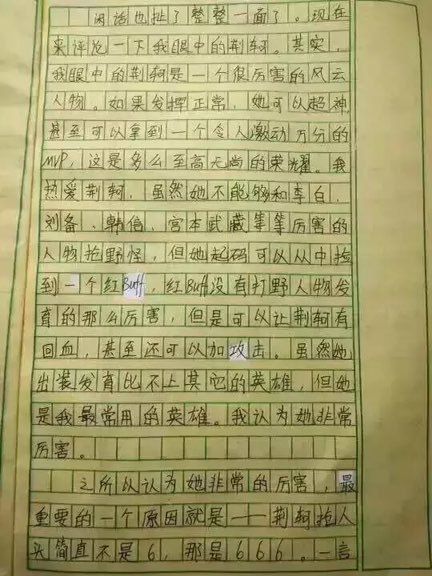 闲话也扯了整整一面了。现在
来评论一下我眼中的荆轲。其实，
我眼中的荆轲是一个很厉害的风云
人物。如果发挥正常，她可以超神
甚至可以拿到一个令人激动万分的
MVP，这是多么至高无尚的荣耀。我
热爱荆轲，虽然她不能够和李白、
刘备、韩信、宫本武藏等等厉害的
人物抢野怪，但她起码可以从中捡
到一个红Buff，红Buff没有打野人物发
育的那么厉害，但是可以让荆轲有
回血，甚至还可以加攻击。虽然她
出装发育比不上其它的英雄，但她
是我最常用的英雄。我认为她非常
厉害。
之所以认为她非常的厉害，最
重要的一个原因就是——荆轲抢人
头简直不是6，那是666。一言